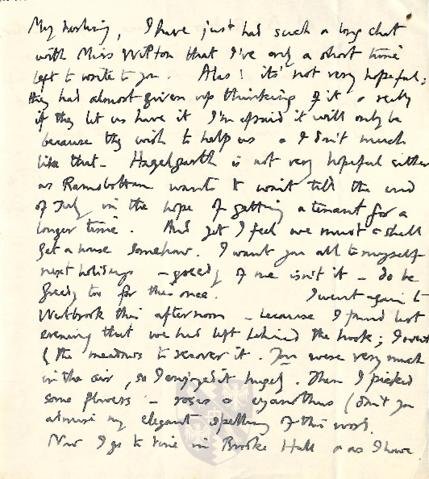 My darling, I have just had such a long chat
with Miss Wilton that I've only a short time
left to write to you. Alas! it's not very hopeful;
they had almost given up thinking of it & really
if they let us have it I'm afraid it will only be
because they wish to help us & I don't much
like that – Hazelgarth is not very hopeful either
as Ramsbottam wants to wait till the end
of July in the hope of getting a tenant for a
longer time. And yet I feel we must & shall
get a house somehow. I want you all to myself
next holidays – greedy of me isn't it – do be
greedy too for this once. I went again to
Watbrook this afternoon – because I found last
evening that we had left behind the book; I went
the meadows to recover it. You were very much
in the air, so I enjoyed it hugely. Then I picked
some flowers – roses & cyanothus (don't you
admire my elegant spelling of this word.
Now I go to dine in Brooke Hall & as I have